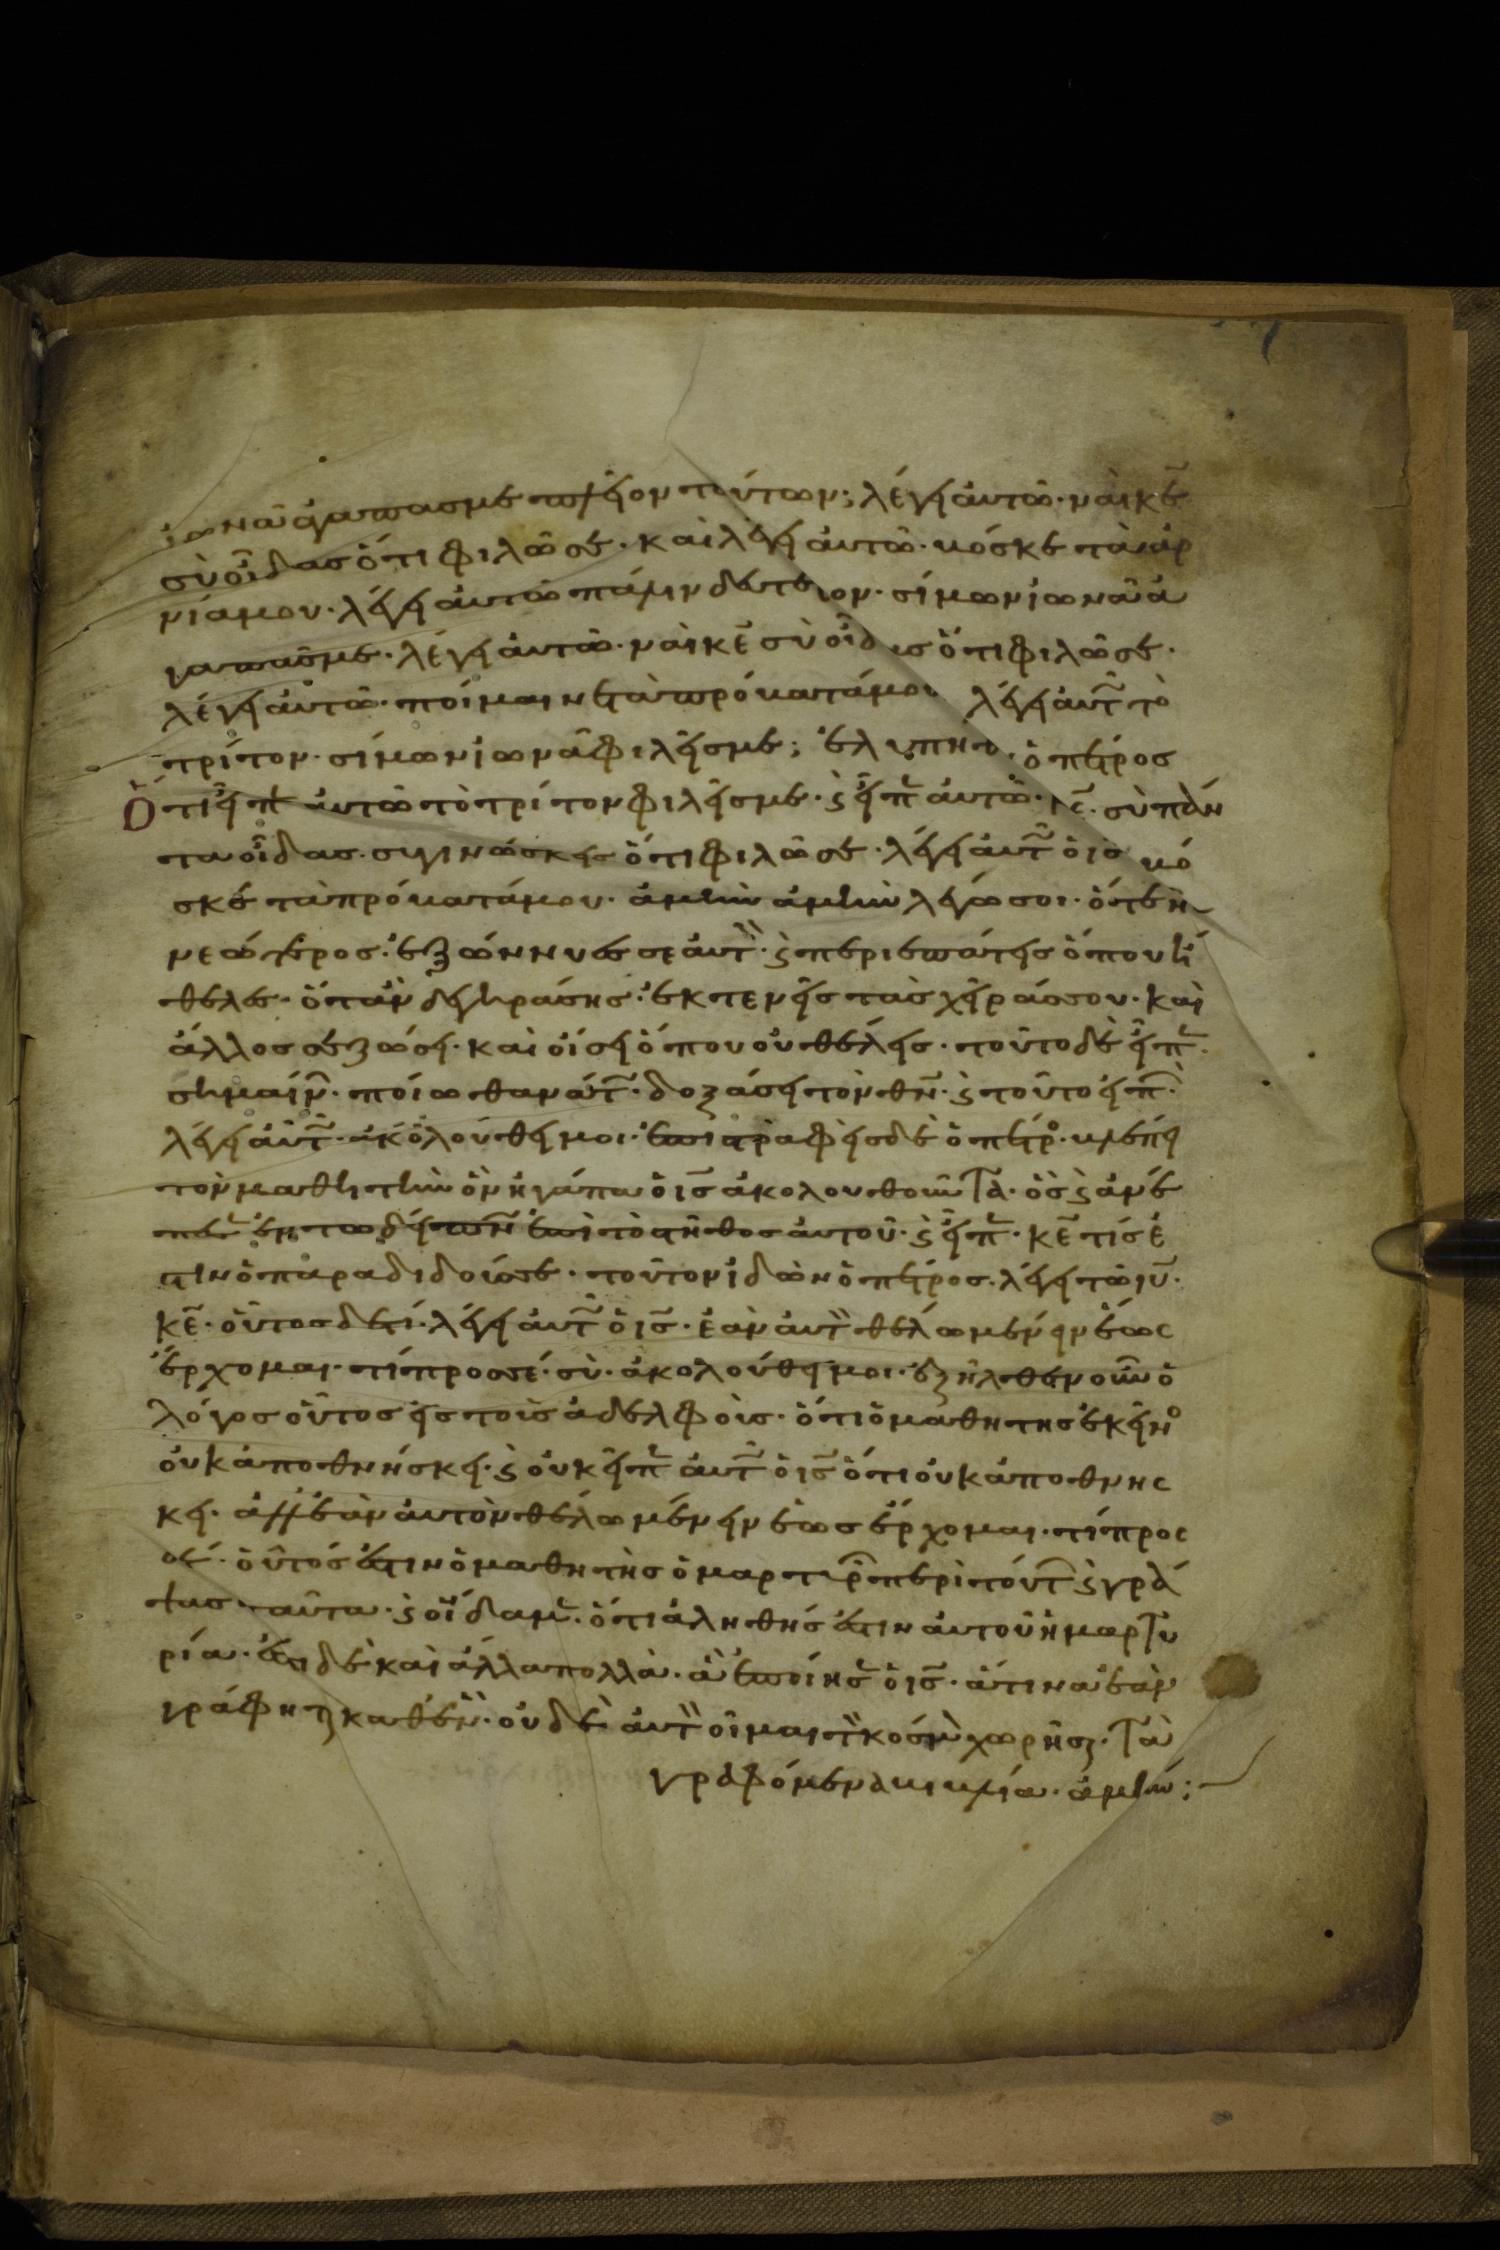 ἰωνᾶ ἀγαπᾶσ με πλεῖον τούτων; λέγει αὐτῶ· ναὶ κε̅
σὺ οἶδασ ὅτι φιλῶ σε· καὶ λέγει αὐτῶ· βόσκε τὰ ἀρ
νία μου· λέγει αὐτῶ πάλιν δεύτερον· σίμων ἰωνᾶ ἀ
γαπᾶσ με· λέγει αὐτῶ· ναὶ κε̅ σὺ οἶδασ ὅτι φιλῶ σε·
λέγει αὐτῶ· ποίμαινε τὰ πρόβατά μου λέγει αὐτ̅ τὸ
τρίτον· σίμων ἰωνᾶ φιλεῖσ με; ἐλυπήθ ὁ πέτροσ
Ὅτι εἶπε αὐτῶ τὸ τρίτον φιλεῖσ με· ϗ εἶπ αὐτῶ· κε̅· σὺ πάν
τα οἶδασ· σὺ γινώσκεισ ὅτι φιλῶ σε· λέγει αὐτ̅ ὁ ισ̅ βό
σκε τὰ πρόβατά μου· ἀμὴν ἀμὴν λέγω σοι· ὅτε ἦσ
νεώτεροσ· ἐζώννυεσ σεαυτ̅· ϗ περιεπάτεισ ὅπου ἤ
θελεσ· ὅταν δὲ γηράσησ· ἐκτενεῖσ τὰσ χεῖράσ σου· καὶ
ἄλλοσ σε ζώσει· καὶ οἴσει ὅπου οὐ θέλεισ· τοῦτο δὲ εἶπ·
σημαίν̅· ποίω θανάτ̅· δοξάσει τὸν θν̅· ϗ τοῦτο εἰπ̅·
λέγει αὐτ̅· ἀκολούθει μοι· ἐπιστραφεὶσ δὲ ὁ πέτρο· βλέπει
τὸν μαθητὴν ὃν ἠγάπα ὁ ισ̅ ἀκολουθοῦντα· ὃσ ϗ ἀνέ
πεσ ἐν τῶ δείπν ἐπὶ τὸ στῆθοσ αὐτοῦ· ϗ εἶπ· κε̅ τίσ ἐ
στιν ὁ παραδιδούσ σε· τοῦτον ἰδὼν ὁ πέτροσ· λέγει τῶ ιυ̅·
κε̅· οὗτοσ δὲ τί· λέγει αὐτ̅ ὁ ισ̅· ἐὰν αὐτ̅ θέλω μένειν ἕωσ
ἔρχομαι· τί πρόσ σέ· σὺ· ἀκολούθει μοι· ἐξῆλθεν οὖν ὁ
λόγοσ οὗτοσ εἰσ τοὺσ ἀδελφοὺσ· ὅτι ὁ μαθητὴσ ἐκεῖνο
οὐκ ἀποθνήσκει· ϗ οὐκ εἶπ αὐτ̅ ὁ ισ̅ ὅτι οὐκ ἀποθνησ
κει· ἀλλ ἐὰν αὐτὸν θέλω μένειν ἕωσ ἔρχομαι· τί προσ
σέ· οὗτόσ ἐστιν ὁ μαθητὴσ ὁ μαρτυρ̅ περὶ τούτ̅ ϗ γρά
ψασ ταῦτα· ϗ οἴδαμ· ὅτι ἀληθήσ ἐστιν αὐτοῦ ἡ μαρτυ
ρία· ἔστι δὲ καὶ ἄλλα πολλὰ· ἃ ἐποίησ ὁ ισ̅· ἅτινα ἐὰν
γράφηται καθ ἕν· οὐδὲ αὐτ̅ οἶμαι τ̅ κόσμ χωρῆσαι· τὰ
γραφόμενα βιβλία· ἀμήν;